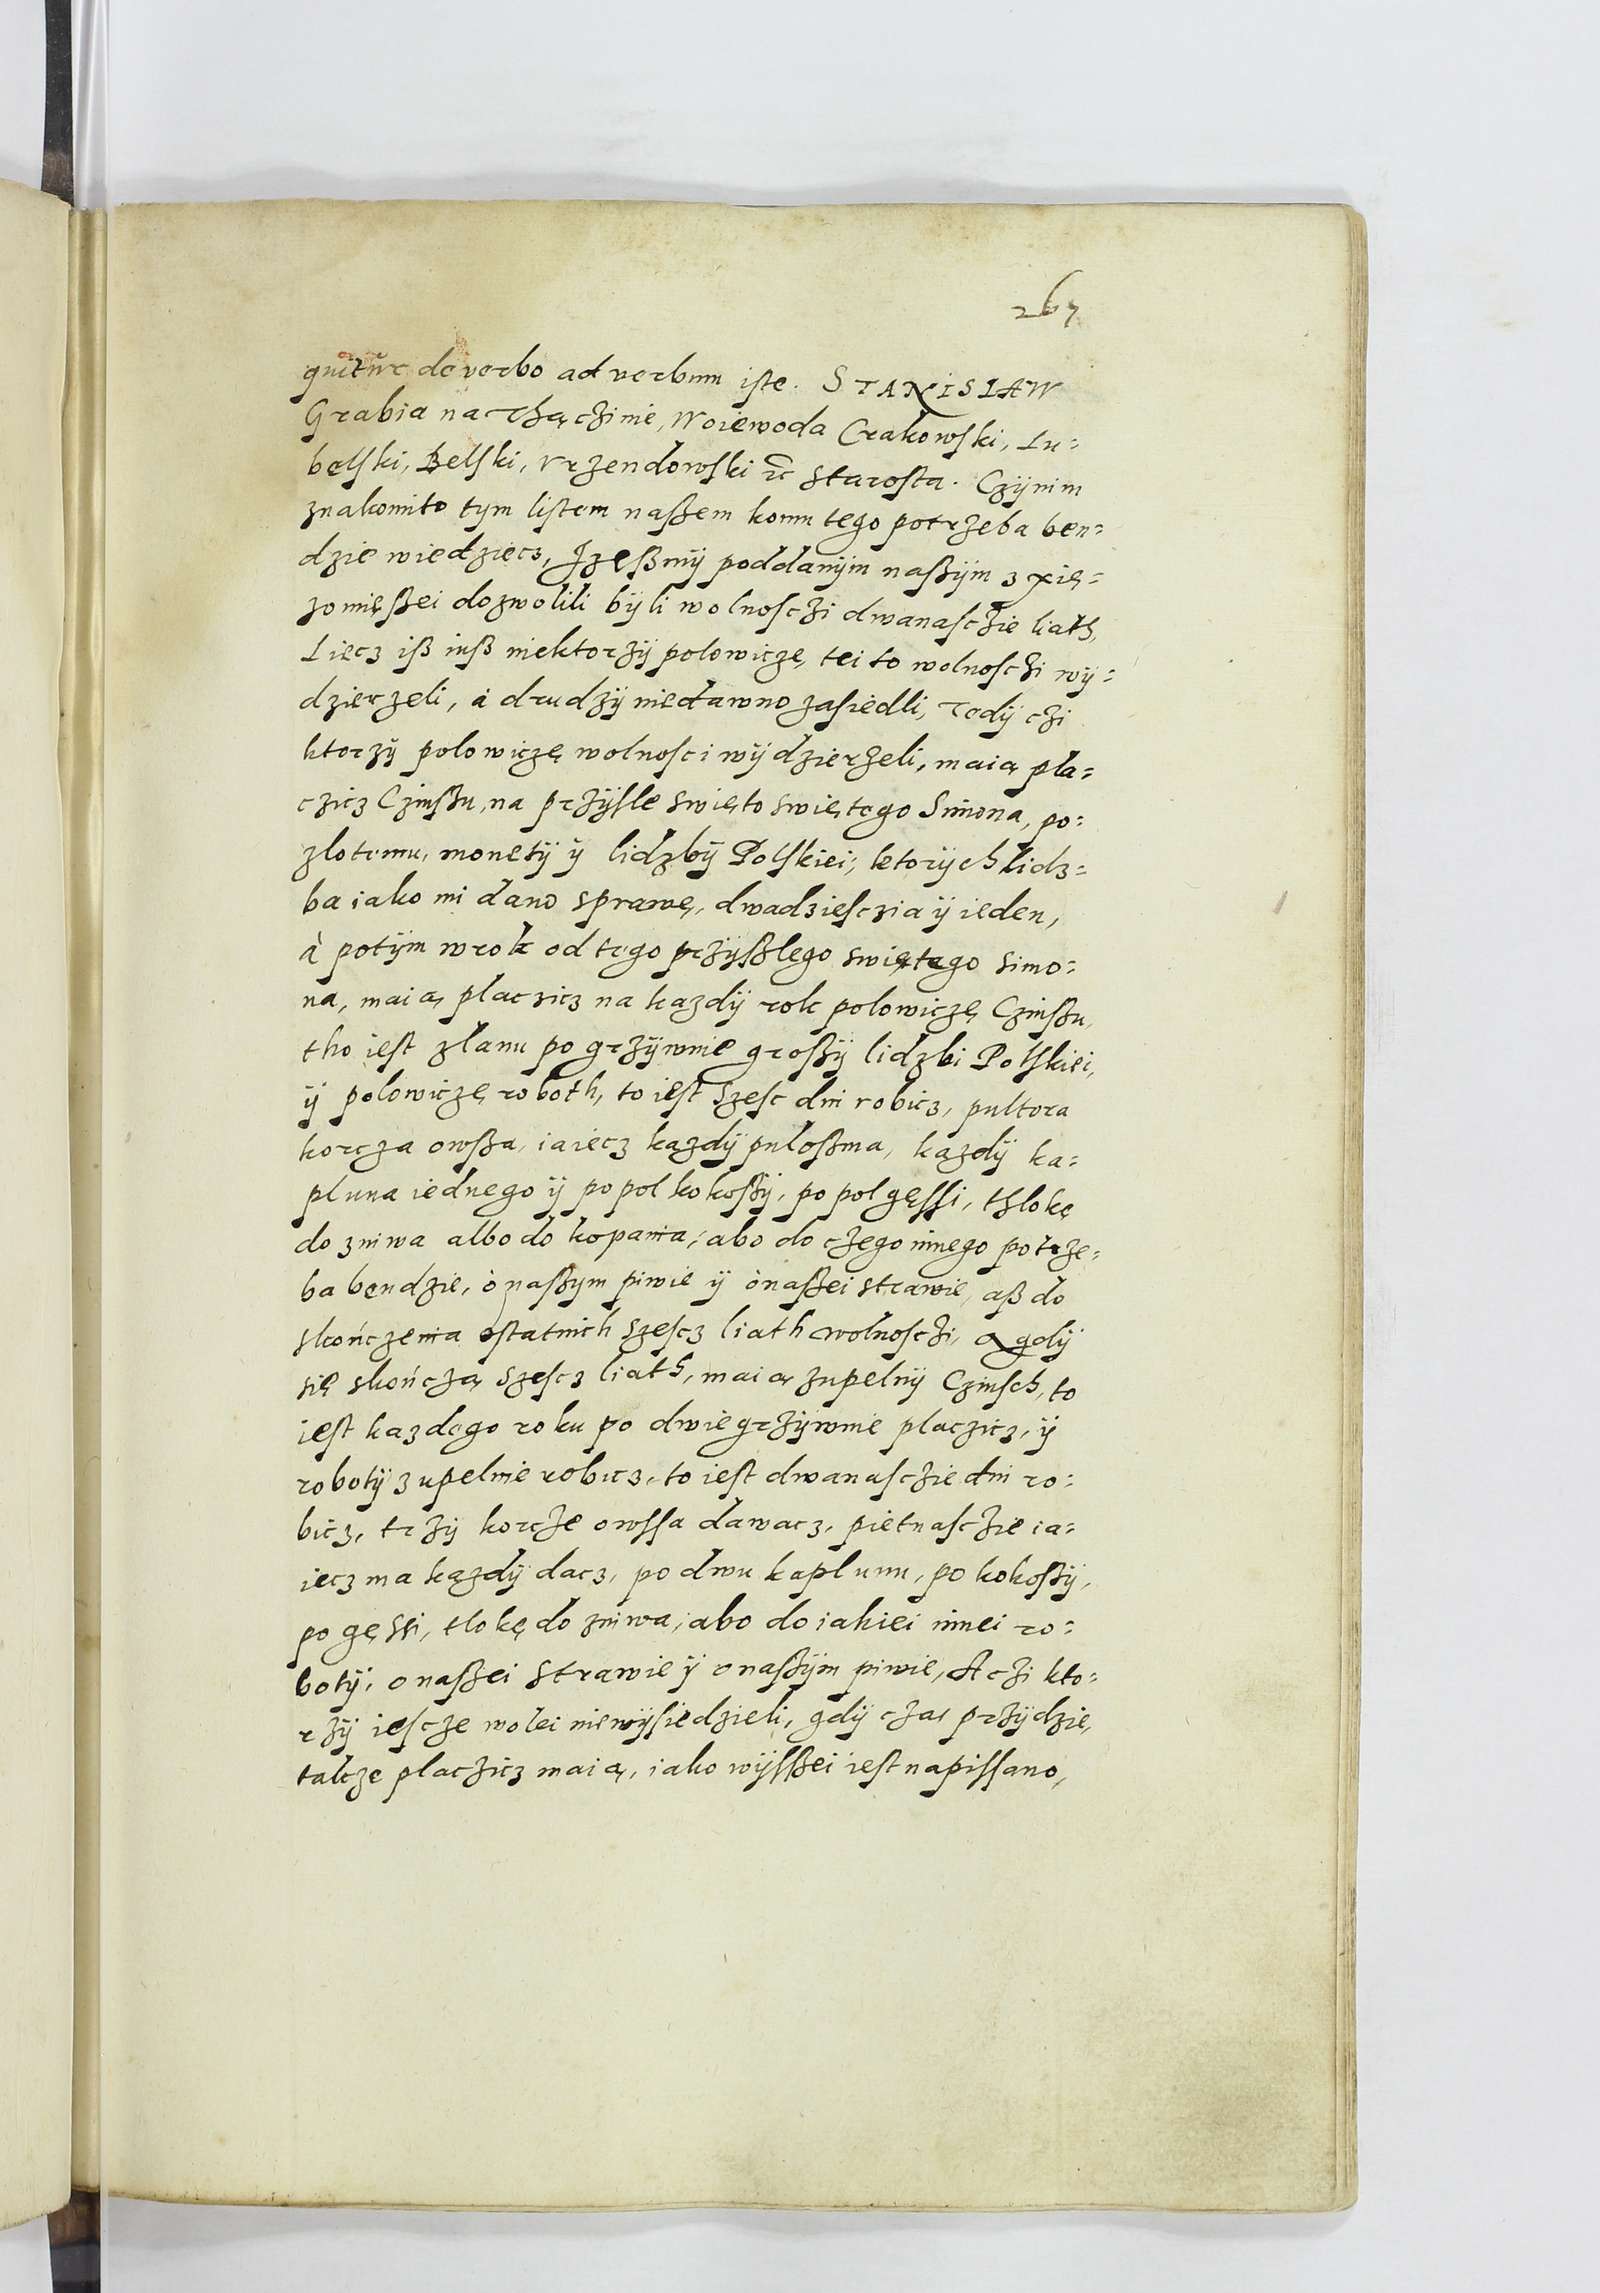 267
quitur de verbo ad verbum iste. STANISLAW
Grabia na Thęczinie, Woiewoda Crakowski, Lu=
belski, Belski, Vrzendowski etc Starosta. Czÿnim
znakomito tym listem naßem komu tego potrzeba ben=
dzie wiedziecz, Izeßmÿ poddanÿm naßÿm z xię=
zomięßei dozwolili bÿli wolnosczi dwanasczie liath,
Liecz iß iuß niektorzÿ polowiczę tei to wolnosczi wÿ=
dzierzeli, à drudzÿ niedawno zasiedli, Tedÿ czi
ktorzÿ polowiczę wolnosci wÿdzierzeli, maią pla=
czicz Czinßu, na przÿsłe swięto swiętego Simona, po=
zlotemu, monetÿ ÿ lidzbÿ Polskiei, ktorÿch lidz=
ba iako mi dano sprawę, dwadziesczia ÿ ieden,
à potÿm wrok od tego przÿßlego swiętego Simo=
na, maią placzicz na kazdÿ rok polowiczę Czinßu,
tho iest złanu po grzÿwnie großÿ lidzbi Polskiei,
ÿ polowiczę roboth, to iest szesc dni robicz, pultora
korcza owßa, iaiecz kazdÿ pułoßma, kazdÿ ka=
pluna iednego ÿ po pol kokoßÿ, po pol gęssi, thlokę
do zniwa albo do kopania, abo do czego innego potrze=
ba bendzie, ò naßym piwie ÿ ò naßei strawie, aß do
skończenia ostatnich szescz liath wolnosczi, a gdÿ
się skończą szescz liath, maią zupelnÿ Czinsch, to
iest kazdego roku po dwie grzÿwnie placzicz, ÿ
robotÿ zupelnie robicz, to iest dwanasczie dni ro=
bicz, trzÿ korcze owssa dawacz, pietnasczie ia=
iecz ma kazdÿ dacz, po dwu kaplunu, po kokoßÿ,
po gęssi, tlokę do zniwa, abo do iakiei innei ro=
botÿ, o naßei strawie ÿ o naßÿm piwie, A czi kto=
rzÿ iescze wolei niewÿsiedzieli, gdÿ czas przÿdzie,
takze placzicz maią, iako wÿsßei iest napissano,